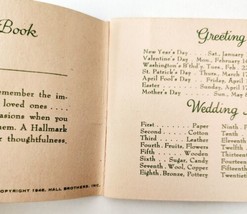 Book
emember the im-
loved ones . . . .
asions when you
hem. A Hallmark
r thoughtfulness,
COPYRIGHT 1948, HALL BROTHERS, INC.
Greeting
New Year's Day Sat., January
Valentine's Day Mon., February
Washington's B'thd'y, Tues., Feb. 22
St. Patrick's Day Thurs., March
April Fool's Day Friday, April
Easter Sunday, April 17
Mother's Day Sun., May
Wedding
First Paper
Second Cotton
Third Leather
Fourth, Fruits, Flowers
Fifth Wooden
Sixth Sugar, Candy
Seventh, Wool, Copper
Eighth, Bronze, Pottery
Ninth
Tenth
Eleventh
Twelfth
Thirteenth
Fourteenth
Fifteenth
Twentieth